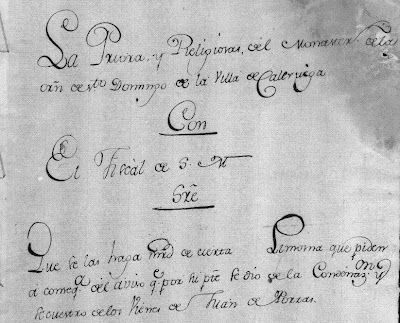 La Priora, y Religiosas, del Monastero de la
orn de sto Domingo de la Villa de Caleruega
Con
El Fiscàl de S. M
Sre
Que se las haga mrd de cierta Limosna que piden
à conseqa del aviso q. por hi pte se dio de la Condonazon y
sequestro de los bienes de Juan de Porras.